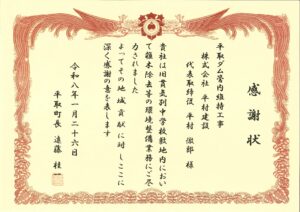 感謝状
平取ダム管内維持工事
株式会社 平村建設
代表取締役 平村 徹郎 様
貴社は旧貫気別中学校敷地内におい
て雑木除去等の環境整備業務にご尽
力されました
よってその地域貢献に対しここに
深く感謝の意を表します
令和八年一月二十六日
平取町長 遠藤 桂一